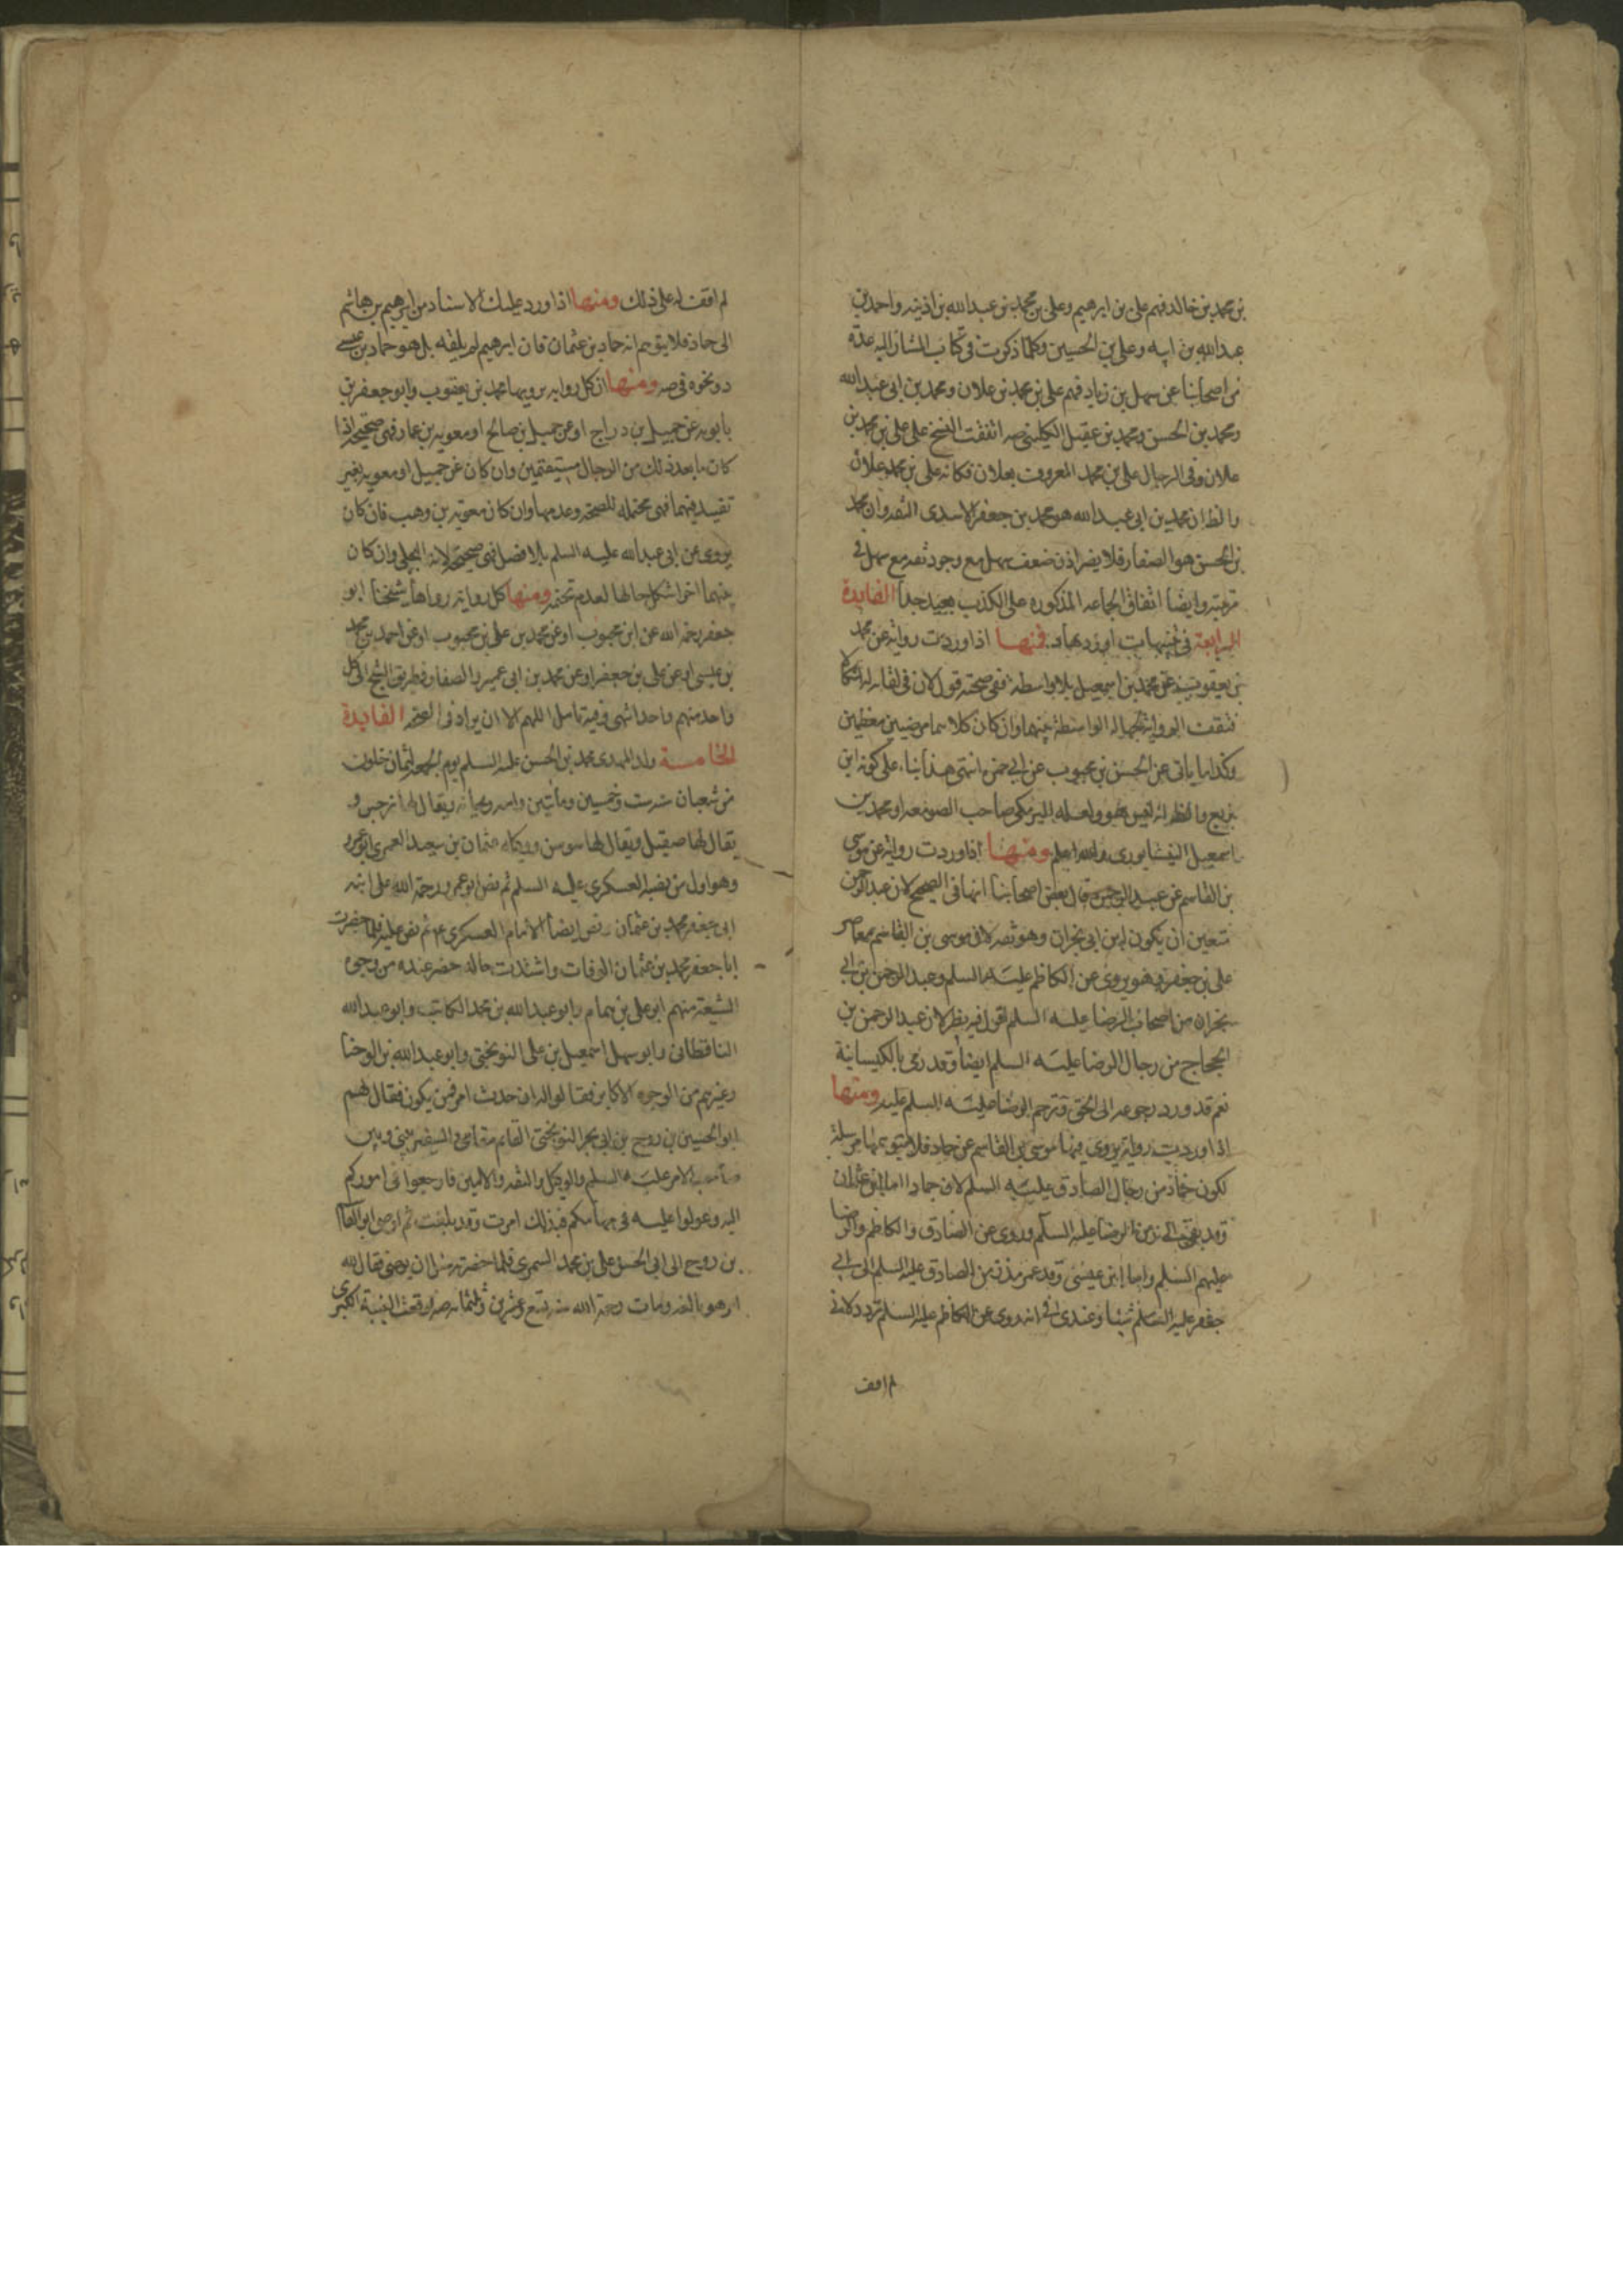 بن محمد بن خالد فهم علي بن ابرهيم وعلي بن محمد بن عبدالله بن اذينه واحمد بن
عبدالله بن ابيه وعلي بن الحسين وكلما ذكرت في كتاب المشار اليه عدة
من اصحابنا عن سهل بن زياد فهم علي بن محمد بن علان ومحمد بن ابي عبدالله
ومحمد بن الحسن ومحمد بن عقيل الكليني صه اتفقت النسخ على علي بن محمد بن
علان وفي الرجال علي بن محمد المعروف بعلان فكانه علي بن محمد علان
والظ ان محمد بن ابي عبدالله هو محمد بن جعفر الاسدي الثقه وان محمد
بن الحسن هو الصفار فلا يضر اذن ضعف سهل مع وجود ثقه مع سهل في
مرتبته وايضا اتفاق الجماعه المذكوره على الكذب بعيد جدا الفايدة
الرابعة في تنبيهات اوردها د فمنها اذا وردت روايه عن محمد
بن يعقوب عن محمد بن اسمعيل بلا واسطه ففي صحته قول لان في لقائه له اشكالا
فتقف الروايه لجهاله الواسطه بينهما وان كان كلاهما مرضيين معظمين
وكذا ما ياتي عن الحسن بن محبوب عن ابي حمزه انتهى هذا بناء على كونه ابن
بزيع والظ انه ليس هو ولعله البرمكي صاحب الصومعه او محمد بن
اسمعيل النيشابوري والله اعلم ومنها اذا وردت روايه عن موسى
بن القاسم عن عبد الرحمن فقال بعض اصحابنا انها في الصحيح لان عبد الرحمن
متعين ان يكون ابن ابي نجران وهو ثقه لان موسى بن القاسم معاصر
علي بن جعفر وهو يروي عن الكاظم عليه السلم وعبد الرحمن بن ابي
نجران من اصحاب الرضا عليه السلم اقول فيه نظر لان عبد الرحمن بن
الحجاج من رجال الرضا عليه السلم ايضا وقد رمى بالكيسانية
نعم قد ورد رجوعه الى الحق وترحم الرضا عليه السلم عليه ومنها
اذا وردت روايه يروي فيها موسى بن القاسم عن حماد فلا يتوهمها مرسلة
لكون حماد من رجال الصادق عليه السلم لان حمادا اما ابن عثمان
وقد بقي الى زمن الرضا عليه السلم وروى عن الصادق والكاظم والرضا
عليهم السلم واما ابن عيسى وقد عمر مذ زمن الصادق عليه السلم الى ابي
جعفر عليه السلم وعندي في انه روى عن الكاظم عليه السلم تردد لاني
لم اقف
لم اقف له على ذلك ومنها اذا ورد عليك الاسناد من ابرهيم بن هاشم
الى حماد فلا يتوهم انه حماد بن عثمان فان ابرهيم لم يلقه بل هو حماد بن عيسى
د ونحوه في صه ومنها ان كل روايه يرويها محمد بن يعقوب وابو جعفر بن
بابويه عن جميل بن دراج او عن جميل بن صالح او معويه بن عمار فهي صحيحه اذا
كان ما بعد ذلك من الرجال مستقيمين وان كان عن جميل او معويه بغير
تقييد فيهما فهي محتمله للصحه وعدمها وان كان معويه بن وهب فان كان
يروي عن ابي عبدالله عليه السلم بلا فصل فهي صحيحه لانه البجلي وان كان
بينهما اخر اشكل حالها لعدم تحتمه ومنها كل روايه رواها شيخنا ابو
جعفر رحمه الله عن ابن محبوب او عن محمد بن علي بن محبوب او عن احمد بن محمد
بن عيسى او عن علي بن جعفر او عن محمد بن ابي عمير والصفار وطريق الشيخ الى كل
واحد منهم واحد انتهى وفيه تامل اللهم الا ان يراد في الصحه الفايدة
الخامسة ولد المهدي محمد بن الحسن عليه السلم يوم الجمعه لثمان خلون
من شعبان سنه ست وخمسين ومأتين وامه ريحانه ويقال لها نرجس و
يقال لها صيقل ويقال لها سوسن ووكله عثمان بن سعيد العمري ابو عمرو
وهو اول من نصبه العسكري عليه السلم ثم نص ابو عمرو رحمه الله على ابنه
ابي جعفر محمد بن عثمان ونص ايضا الامام العسكري ع ثم نص عليه فلما حضرت
ابا جعفر محمد بن عثمان الوفات واشتدت حاله حضر عنده من وجوه
الشيعه منهم ابو علي بن همام وابو عبدالله بن محمد الكاتب وابو عبدالله
الناقطاني وابو سهل اسمعيل بن علي النوبختي وابو عبدالله بن الوجنا
وغيرهم من الوجوه الاكابر فقالوا له ان حدث امر فمن يكون فقال لهم
ابو الحسين بن روح بن ابي بحر النوبختي القائم مقامي والسفير بيني وبين
صاحب الامر عليه السلم والوكيل والثقه والامين فارجعوا في اموركم
اليه وعولوا عليه في مهامكم فبذلك امرت وقد بلغت ثم اوصى ابو القاسم
بن روح الى ابي الحسن علي بن محمد السمري فلما حضرته سئل ان يوصي فقال لله
امر هو بالغه ومات رحمه الله سنه تسع وعشرين وثلثمائه صه ووقعت الغيبة الكبرى